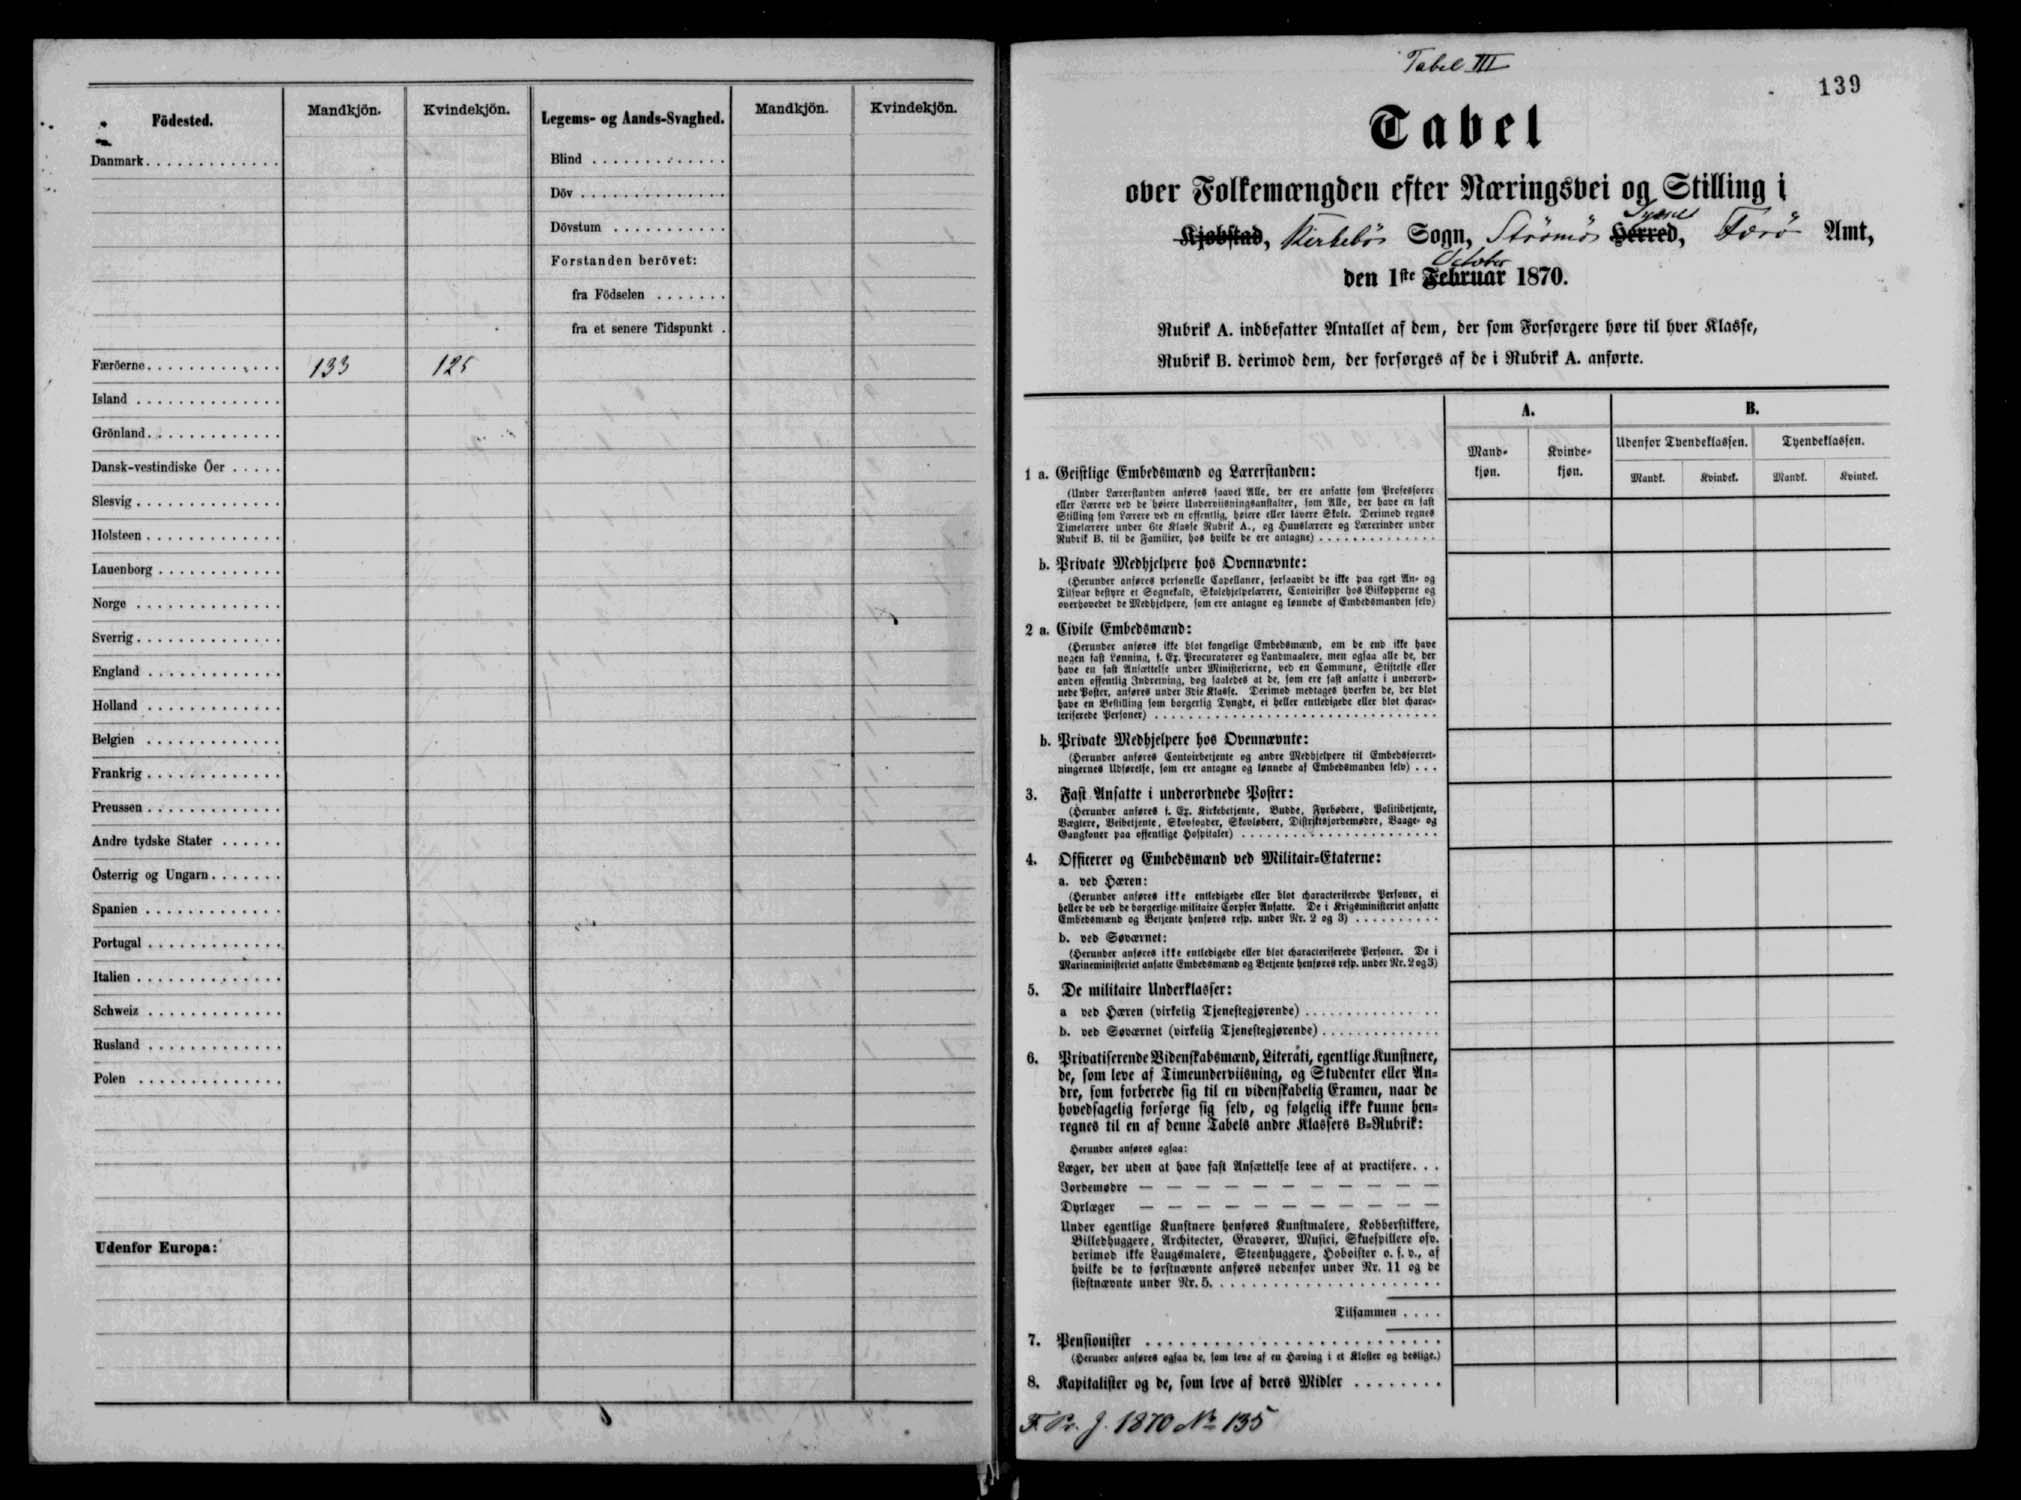 Födested.
Mandkjön.
Kvindekjön.
Legems- og Aands-Svaghed.
Mandkjön.
Kvindekjön.
Danmark
Færöerne 133 125
Island
Grönland
Dansk-vestindiske Öer
Slesvig
Holsteen
Lauenborg
Norge
Sverrig
England
Holland
Belgien
Frankrig
Preussen
Andre tydske Stater
Österrig og Ungarn
Spanien
Portugal
Italien
Schweiz
Rusland
Polen
Udenfor Europa:
Blind
Döv
Dövstum
Forstanden berövet:
fra Födselen
fra et senere Tidspunkt
Tabel III
139
Tabel
over Folkemængden efter Næringsvei og Stilling i
Kjøbstad, Kirkebös Sogn, Strömös Herred, Færö Amt,
Syssel
October
den 1ste Februar 1870.
Rubrik A. indbefatter Antallet af dem, der som Forsørgere høre til hver Klasse,
Rubrik B. derimod dem, der forsørges af de i Rubrik A. anførte.
A.
B.
Mand-
kjøn.
Kvinde-
kjøn.
Udenfor Tyendeklassen.
Tyendeklassen.
Mandk.
Kvindek.
Mandk.
Kvindek.
1 a. Geistlige Embedsmænd og Lærerstanden:
(Under Lærerstanden anføres saavel Alle, der ere ansatte som Professorer
eller Lærere ved de høiere Underviisningsanstalter, som Alle, der have en fast
Stilling som Lærere ved en offentlig, høiere eller lavere Skole. Derimod regnes
Timelærere under 6te Klasse Rubrik A., og Huuslærere og Lærerinder under
Rubrik B. til de Familier, hos hvilke de ere antagne)
b. Private Medhjelpere hos Ovennævnte:
(Herunder anføres personelle Capellaner, forsaavidt de ikke paa eget An- og
Tilsvar bestyre et Sognekald, Skolehjelpelærere, Contoirister hos Biskopperne og
overhovedet de Medhjelpere, som ere antagne og lønnede af Embedsmanden selv)
2 a. Civile Embedsmænd:
(Herunder anføres ikke blot kongelige Embedsmænd, om de end ikke have
nogen fast Lønning, f. Ex. Procuratorer og Landmaalere, men ogsaa alle de, der
have en fast Ansættelse under Ministerierne, ved en Commune, Stiftelse eller
anden offentlig Indretning, dog saaledes at de, som ere fast ansatte i underord-
nede Poster, anføres under 3die Klasse. Derimod medtages hverken de, der blot
have en Bestilling som borgerlig Tyngde, ei heller entledigede eller blot charac-
teriserede Personer)
b. Private Medhjelpere hos Ovennævnte:
(Herunder anføres Contoirbetjente og andre Medhjelpere til Embedsforret-
ningernes Udførelse, som ere antagne og lønnede af Embedsmanden selv)
3. Fast Ansatte i underordnede Poster:
(Herunder anføres f. Ex. Kirkebetjente, Budde, Fyrbødere, Politibetjente,
Vægtere, Veibetjente, Skovfogder, Skovløbere, Distriktsjordemødre, Vaage- og
Gangkoner paa offentlige Hospitaler)
4. Officerer og Embedsmænd ved Militair-Etaterne:
a. ved Hæren:
(Herunder anføres ikke entledigede eller blot characteriserede Personer, ei
heller de ved de borgerlige militaire Corpser Ansatte. De i Krigsministeriet ansatte
Embedsmænd og Betjente henføres resp. under Nr. 2 og 3)
b. ved Søværnet:
(Herunder anføres ikke entledigede eller blot characteriserede Personer. De i
Marineministeriet ansatte Embedsmænd og Betjente henføres resp. under Nr. 2 og 3)
5. De militaire Underklasser:
a ved Hæren (virkelig Tjenestegjørende)
b. ved Søværnet (virkelig Tjenestegjørende)
6. Privatiserende Videnskabsmænd, Literáti, egentlige Kunstnere,
de, som leve af Timeunderviisning, og Studenter eller An-
dre, som forberede sig til en videnskabelig Examen, naar de
hovedsagelig forsørge sig selv, og følgelig ikke kunne hen-
regnes til en af denne Tabels andre Klassers B-Rubrik:
Herunder anføres ogsaa:
Læger, der uden at have fast Ansættelse leve af at practisere
Jordemødre — — — — — — — — — — —
Dyrlæger — — — — — — — — — — —
Under egentlige Kunstnere henføres Kunstmalere, Kobberstikkere,
Billedhuggere, Architecter, Gravører, Musici, Skuespillere osv.
derimod ikke Laugsmalere, Steenhuggere, Hoboister o. s. v., af
hvilke de to førstnævnte anføres nedenfor under Nr. 11 og de
sidstnævnte under Nr. 5.
Tilsammen
7. Pensionister
(Herunder anføres ogsaa de, som leve af en Hæving i et Kloster og deslige.)
8. Kapitalister og de, som leve af deres Midler
F. Pr. J. 1870 No 135